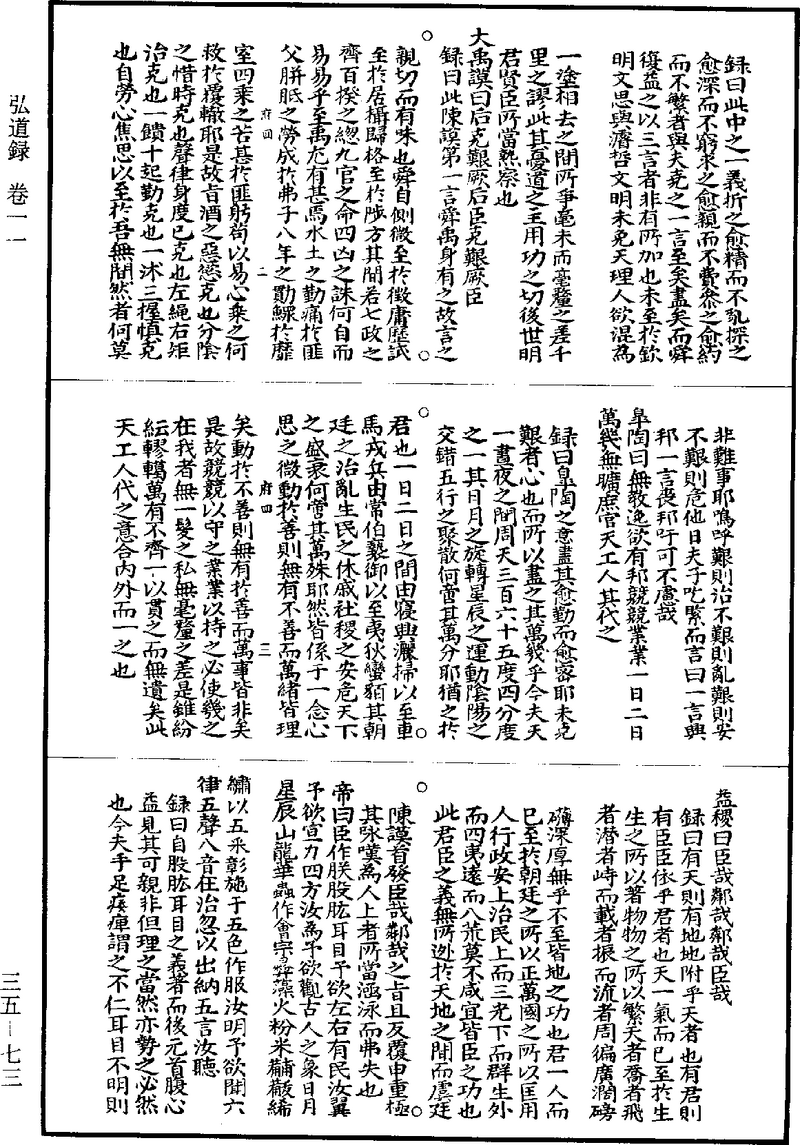 弘道録　卷一　一
録曰此中之一義折之愈精而不亂探之
愈深而不窮求之愈親而不費叅之愈約
而不繁者與夫堯之一言至矣盡矣而舜
復益之以三言者非有所加也未至於欽
明文思與濬哲文明未免天理人欲混為
一塗相去之間所爭毫末而毫釐之差千
里之謬此其憂道之主用功之切後世明
君賢臣所當熟察也
大禹謨曰后克艱厥后臣克艱厥臣
録曰此陳謨第一言舜禹身有之故言之
親切而有味也舜自側微至於徵庸歷試
至於居攝歸格至於陟方其間若七政之
齊百揆之總九官之命四凶之誅何自而
易易乎至禹尤有甚焉水土之勤痛於匪
父胼胝之勞成於弗子八年之勩鰥於靡
府四　二
室四乘之苦甚於匪躬尚以易心乘之何
救於覆轍耶是故旨酒之惡愆克也分陰
之惜時克也聲律身度己克也左繩右矩
治克也一饋十起勤克也一沐三握慎克
也自勞心焦思以至於吾無間然者何莫
非難事耶嗚呼艱則治不艱則亂艱則安
不艱則危他日夫子吃緊而言曰一言興
邦一言喪邦吁可不慮哉
臯陶曰無教逸欲有邦兢兢業業一日二日
萬幾無曠庶官天工人其代之
録曰臯陶之意蓋其愈勤而愈密耶夫克
艱者心也而所以盡之其萬幾乎今夫天
一晝夜之間周天三百六十五度四分度
之一其日月之旋轉星辰之運動隂陽之
交錯五行之聚散何啻其萬分耶猶之於
君也一日二日之間由寢興灑掃以至車
馬戎兵由常伯褻御以至夷狄蠻貊其朝
廷之治亂生民之休戚社稷之安危天下
之盛衰何啻其萬殊耶然皆係于一念心
思之微動於善則無有不善而萬緒皆理
府四　三
矣動於不善則無有於善而萬事皆非矣
是故兢兢以守之業業以持之必使幾之
在我者無一髮之私無毫釐之差是雖紛
紜轇轕萬有不齊一以貫之而無遺矣此
天工人代之意合內外而一之也
益稷曰臣哉鄰哉鄰哉臣哉
録曰有天則有地地附乎天者也有君則
有臣臣依乎君者也天一氣而已至於生
生之所以著物物之所以繁夭者喬者飛
者潛者峙而載者振而流者周徧廣濶磅
礴深厚無乎不至皆地之功也君一人而
已至於朝廷之所以正萬國之所以匡用
人行政安上治民上而三光下而群生外
而四夷遠而八荒莫不咸宜皆臣之功也
此君臣之義無所逃於天地之間而虞廷
陳謨首發臣哉鄰哉之旨且反覆申重極
其咏嘆為人上者所當涵泳而弗失也
帝曰臣作朕股肱耳目予欲左右有民汝翼
予欲宣力四方汝為予欲觀古人之象日月
星辰山龍華蟲作會宗彝藻火粉米黼黻絺
繡以五采彰施于五色作服汝明予欲聞六
律五聲八音在治忽以出納五言汝聽
録曰自股肱耳目之義著而後元首腹心
益見其可親非但理之當然亦勢之必然
也今夫手足痿痺謂之不仁耳目不明則
三五—七三